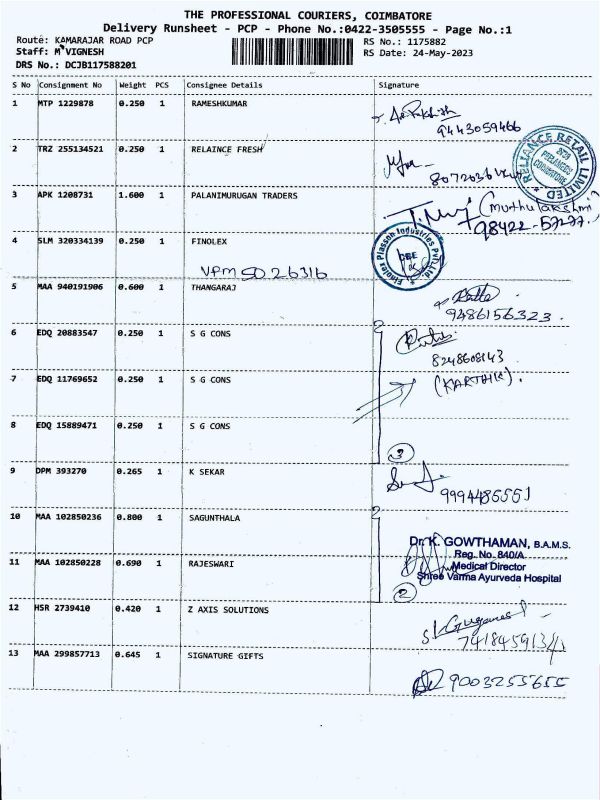 THE PROFESSIONAL COURIERS, COIMBATORE
Delivery Runsheet - PCP - Phone No.:0422-3505555 - Page No.:1
Route: KAMARAJAR ROAD PCP
RS No.: 1175882
Staff: M VIGNESH
RS Date: 24-May-2023
DRS No.: DCJB117588201
S No Consignment No Weight PCS Consignee Details Signature
1 MTP 1229878 0.250 1 RAMESHKUMAR
9443059466
2 TRZ 255134521 0.250 1 RELAINCE FRESH
RELIANCE RETAIL LIMITED
3 APK 1208731 1.600 1 PALANIMURUGAN TRADERS
(Muthulakshmi)
98422-57277.
4 SLM 320334139 0.250 1 FINOLEX
Finolex Plasson Industries Pvt. Ltd.
CBE
VPM 50 26316
5 MAA 940191906 0.600 1 THANGARAJ
9486156323.
6 EDQ 20883547 0.250 1 S G CONS
8248608143
7 EDQ 11769652 0.250 1 S G CONS
(KARTHIK).
8 EDQ 15889471 0.250 1 S G CONS
3
9 DPM 393270 0.265 1 K SEKAR
9994485551
10 MAA 102850236 0.800 1 SAGUNTHALA
Dr. K. GOWTHAMAN, B.A.M.S.
Reg. No. 840/A
11 MAA 102850228 0.690 1 RAJESWARI
Medical Director
Shree Varma Ayurveda Hospital
2
12 HSR 2739410 0.420 1 Z AXIS SOLUTIONS
13 MAA 299857713 0.645 1 SIGNATURE GIFTS
9003255655